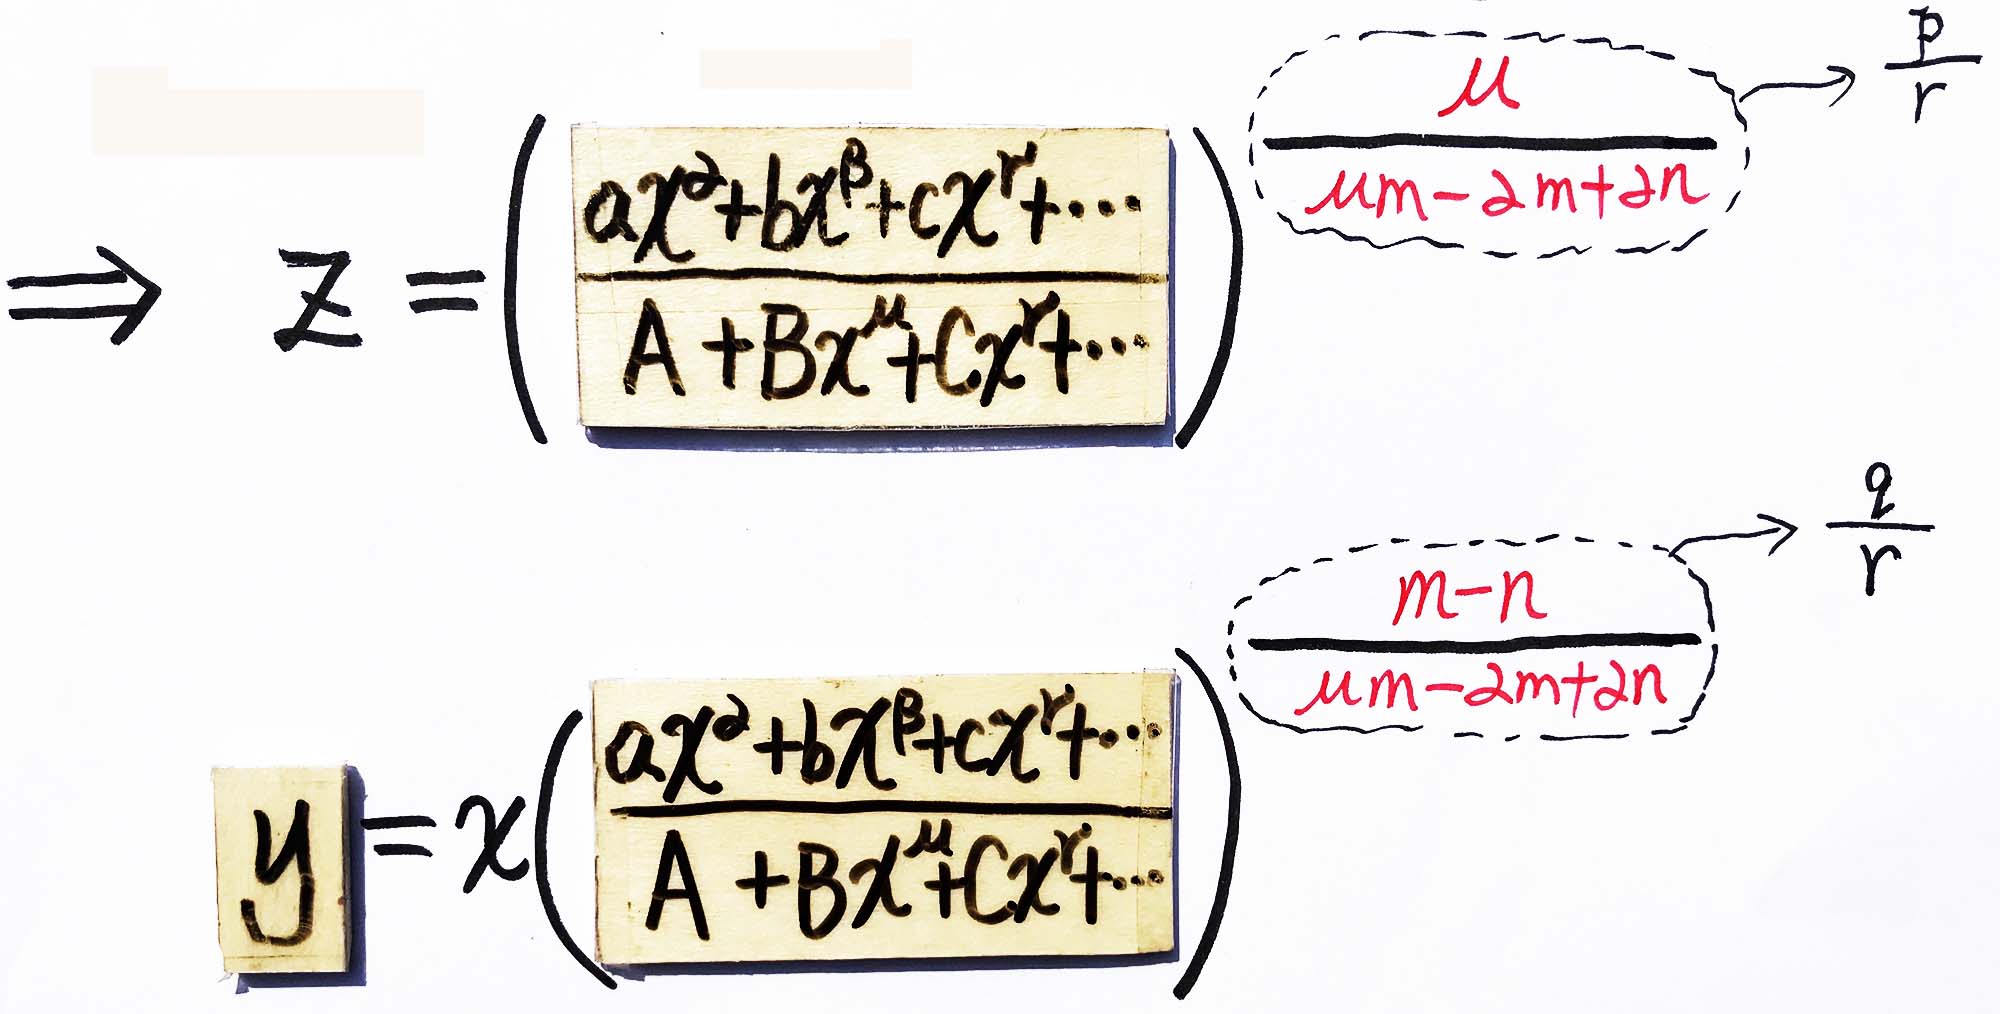 ⇒ z = ( (ax^α + bx^β + cx^γ + ···) / (A + Bx^μ + Cx^γ + ···) )^(μ / (μm − 2m + 2n)) → p/r
y = x ( (ax^α + bx^β + cx^γ + ···) / (A + Bx^μ + Cx^γ + ···) )^((m − n) / (μm − 2m + 2n)) → q/r